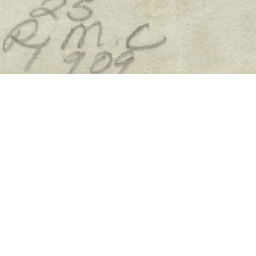 25
R. M. C
1909